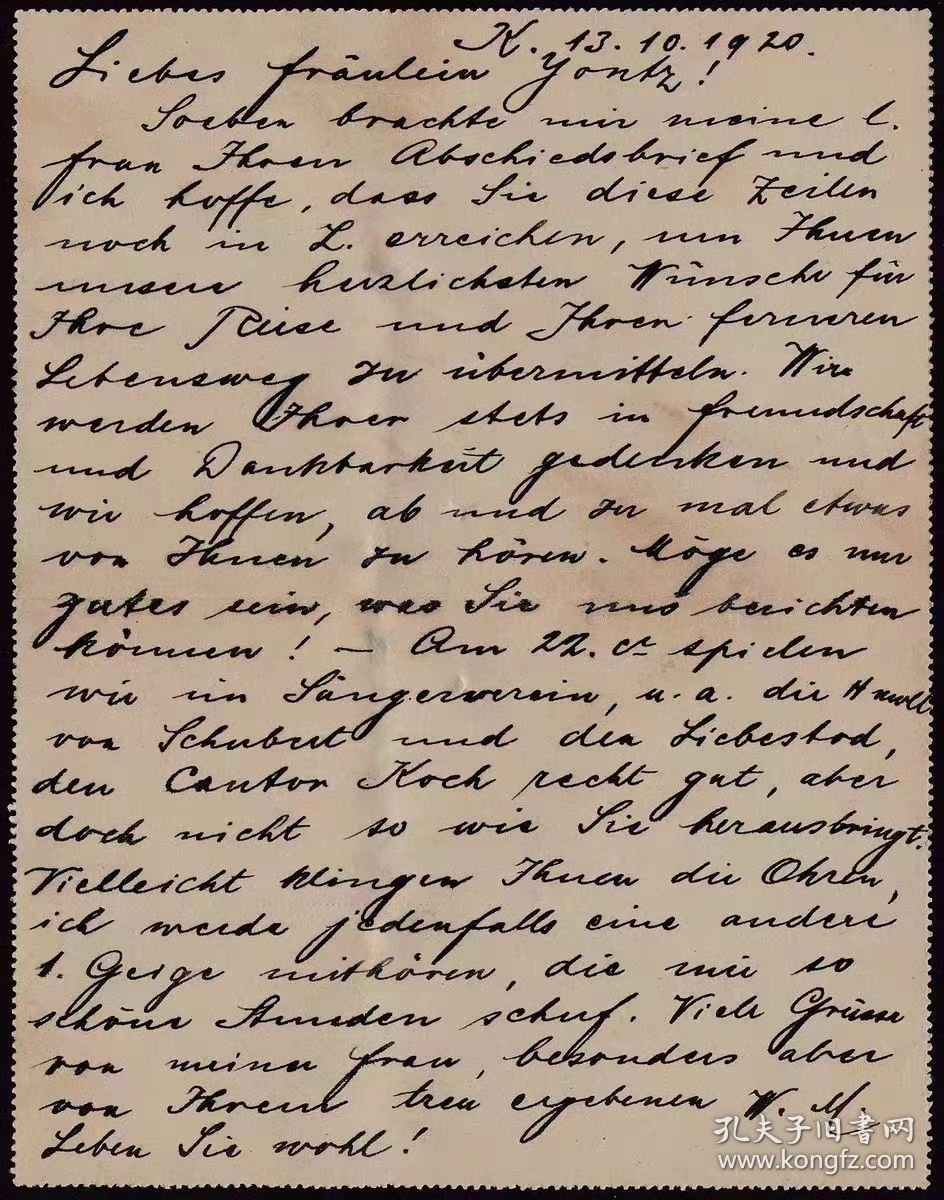 K. 13. 10. 1920.
Liebes Fräulein Yontz!
Soeben brachte mir meine l.
Frau Ihren Abschiedsbrief und
ich hoffe, dass Sie diese Zeilen
noch in L. erreichen, um Ihnen
unsere herzlichsten Wünsche für
Ihre Reise und Ihren ferneren
Lebensweg zu übermitteln. Wir
werden Ihrer stets in Freundschaft
und Dankbarkeit gedenken und
wir hoffen, ab und zu mal etwas
von Ihnen zu hören. Möge es nur
gutes sein, was Sie uns berichten
können! – Am 22. cr spielen
wir im Sängerverein, u. a. die H moll
von Schubert und den Liebestod,
den Cantor Koch recht gut, aber
doch nicht so wie Sie herausbringt.
Vielleicht klingen Ihnen die Ohren,
ich werde jedenfalls eine andere
1. Geige mithören, die mir so
schöne Stunden schuf. Viele Grüsse
von meiner Frau, besonders aber
von Ihrem treu ergebenen W. M.
Leben Sie wohl!
孔夫子旧书网
www.kongfz.com